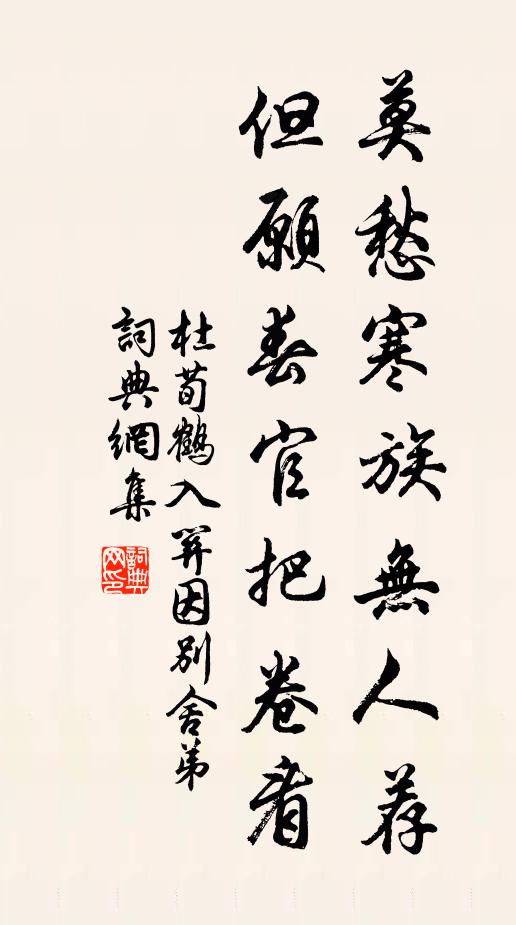 莫愁寒族無人荐
但願春官把卷看
杜荀鶴入關因別舍弟
詞典網集
詞典网印